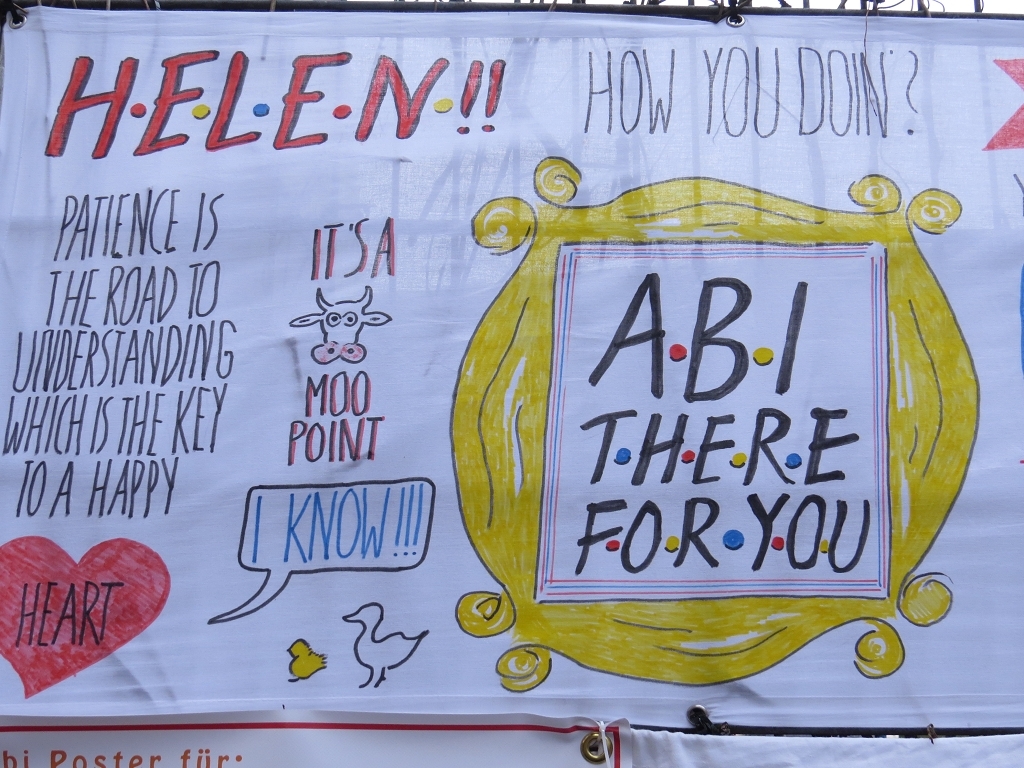 H•E•L•E•N•!!
HOW YOU DOIN'?
PATIENCE IS
THE ROAD TO
UNDERSTANDING
WHICH IS THE KEY
TO A HAPPY
HEART
IT'S A
MOO
POINT
I KNOW!!!
A•B•I
T•H•E•R•E
F•O•R•Y•O•U
bi Poster für: